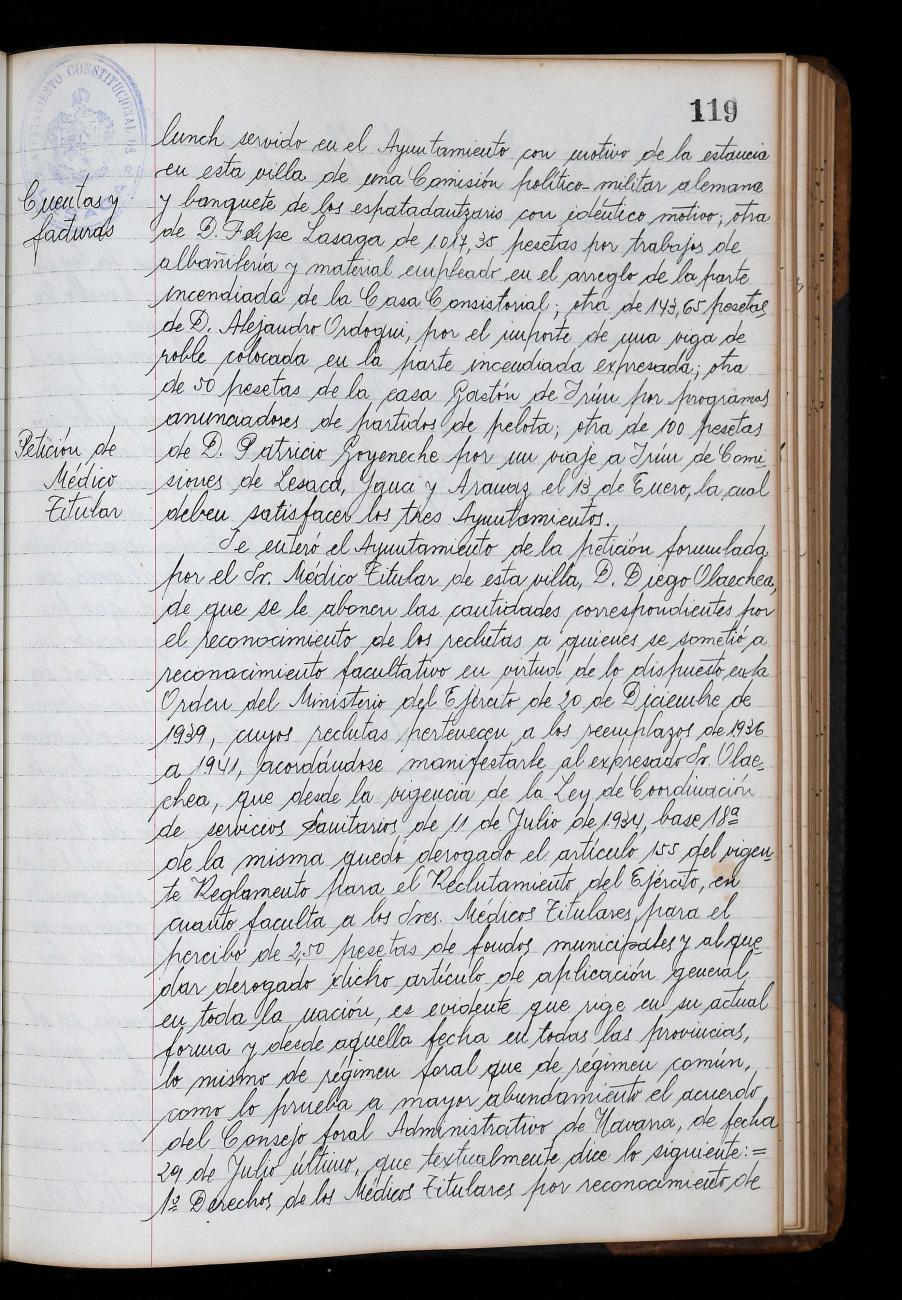 119
AYUNTAMIENTO CONSTITUCIONAL DE
Cuentas y
facturas
lunch servido en el Ayuntamiento con motivo de la estancia
en esta villa de una Comisión político-militar alemana
y banquete de los espatadantzaris con idéntico motivo; otra
de D. Felipe Lasaga de 1.017,35 pesetas por trabajos de
albañilería y material empleado en el arreglo de la parte
incendiada de la Casa Consistorial; otra de 143,65 pesetas
de D. Alejandro Ordoqui, por el importe de una viga de
roble colocada en la parte incendiada expresada; otra
de 50 pesetas de la casa Gastón de Irún por programas
anunciadores de partidos de pelota; otra de 100 pesetas
de D. Patricio Goyeneche por un viaje a Irún de Comi-
siones de Lesaca, Yanci y Aranaz el 13 de Enero, la cual
deben satisfacer los tres Ayuntamientos.
Petición de
Médico
Titular
Se enteró el Ayuntamiento de la petición formulada
por el Sr. Médico Titular de esta villa, D. Diego Olaechea,
de que se le abonen las cantidades correspondientes por
el reconocimiento de los reclutas a quienes se sometió a
reconocimiento facultativo en virtud de lo dispuesto en la
Orden del Ministerio del Ejército de 20 de Diciembre de
1939, cuyos reclutas pertenecen a los reemplazos de 1936
a 1941, acordándose manifestarle al expresado Sr. Olae-
chea, que desde la vigencia de la Ley de Coordinación
de servicios Sanitarios de 11 de Julio de 1934, base 18ª
de la misma quedó derogado el artículo 155 del vigen-
te Reglamento para el Reclutamiento del Ejército, en
cuanto faculta a los Sres. Médicos Titulares para el
percibo de 2,50 pesetas de fondos municipales y al que-
dar derogado dicho artículo de aplicación general
en toda la nación, es evidente que rige en su actual
forma y desde aquella fecha en todas las provincias,
lo mismo de régimen foral que de régimen común,
como lo prueba a mayor abundamiento el acuerdo
del Consejo foral Administrativo de Navarra, de fecha
29 de Julio último, que textualmente dice lo siguiente:=
1º Derechos de los Médicos Titulares por reconocimiento de